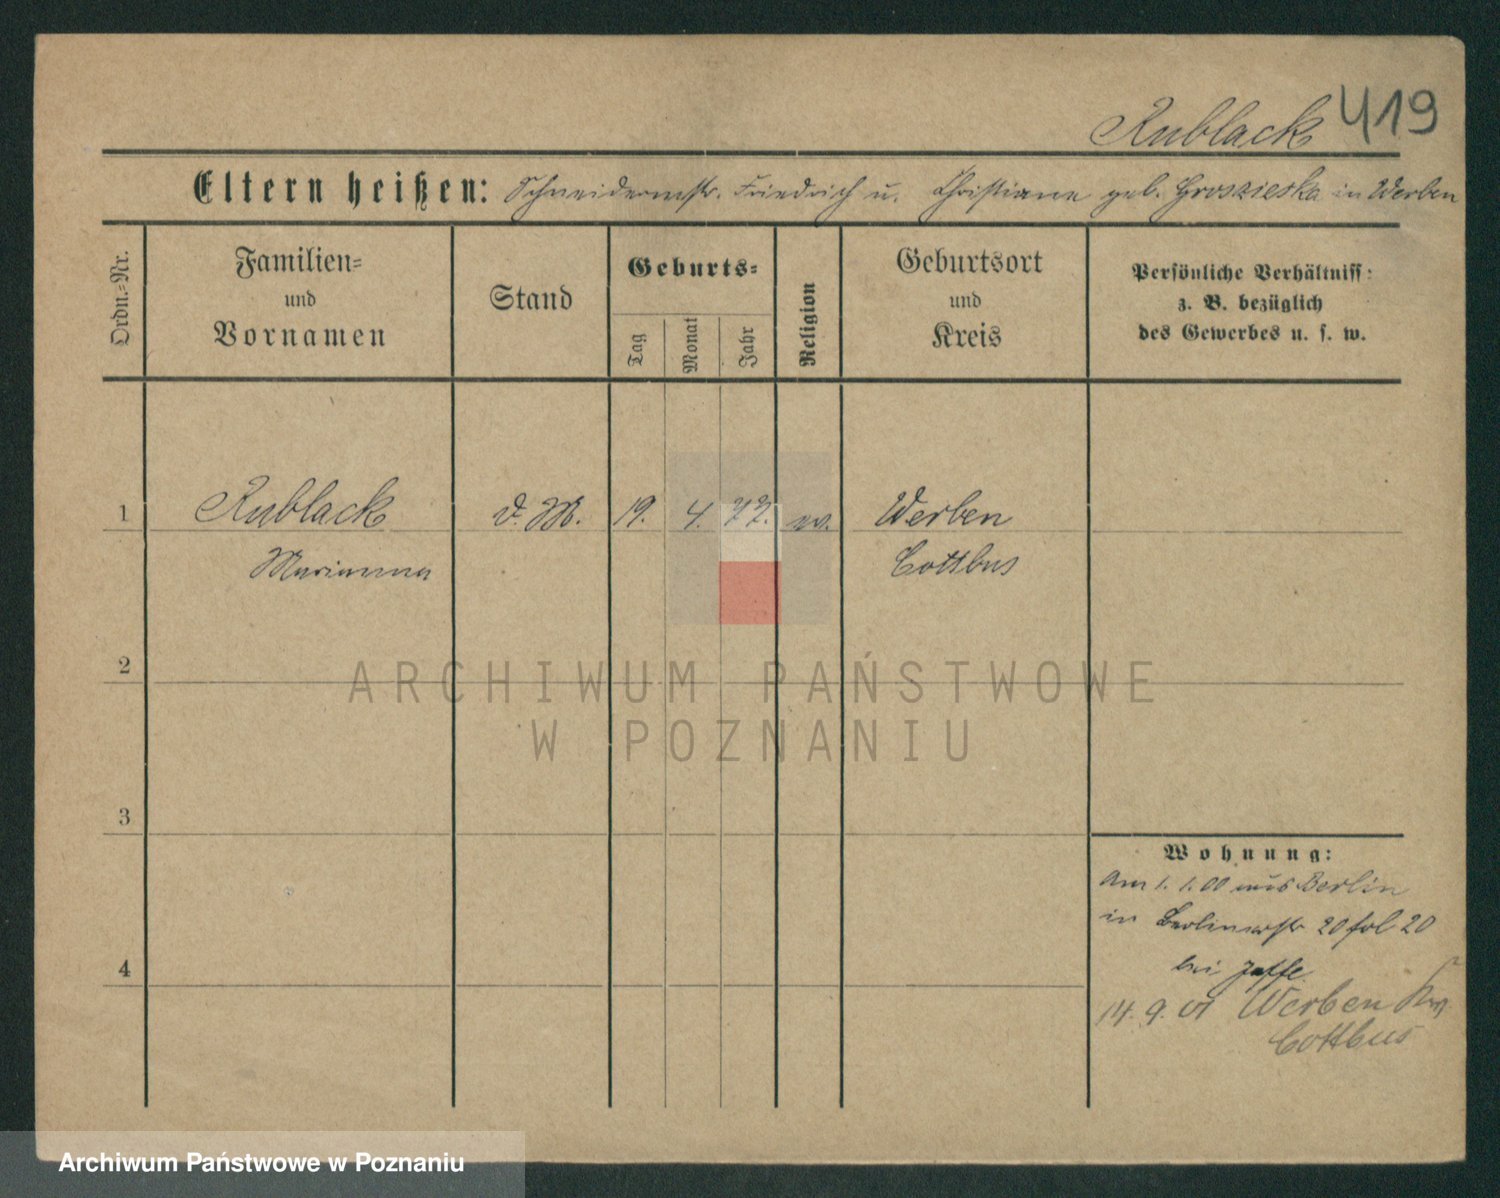 Rublack 419
Eltern heißen: Schneidermstr. Friedrich u. Christiane geb. Groszieska in Werben
Ordn.-Nr.
Familien-
und
Vornamen
Stand
Geburts-
Tag
Monat
Jahr
Religion
Geburtsort
und
Kreis
Persönliche Verhältniss:
z. B. bezüglich
des Gewerbes u. s. w.
1 Rublack d. M. 19. 4. 77. ev. Werben
Marianna Cottbus
2
ARCHIWUM PAŃSTWOWE
W POZNANIU
3
Wohnung:
Am 1. 1. 00 aus Berlin
in Berlinerstr 20 fol 20
4
bei Jaffe
14. 9. 01 Werben
Cottbus
Archiwum Państwowe w Poznaniu